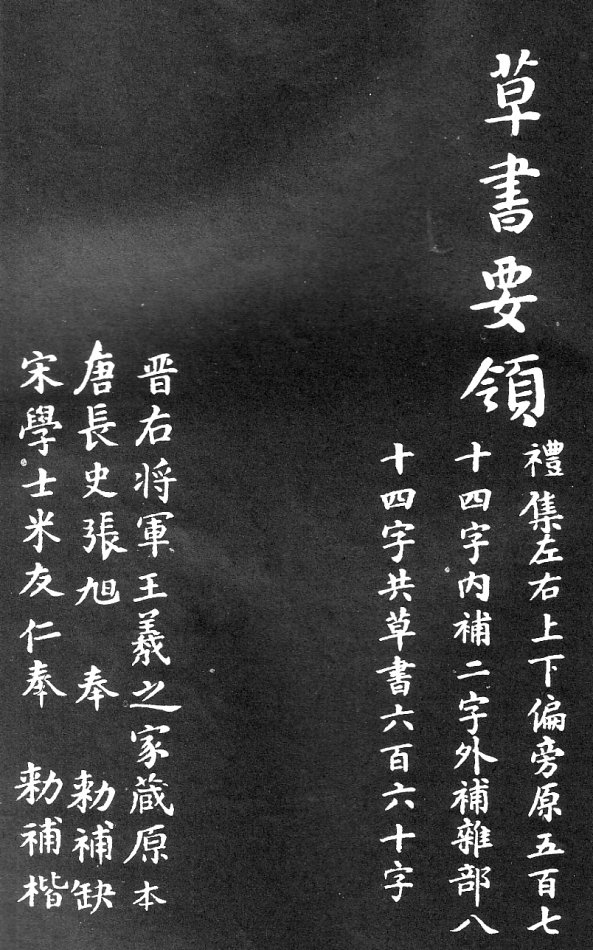 草書要領
禮集左右上下偏旁原五百七
十四字內補二字外補雜部八
十四字共草書六百六十字
晋右将軍王羲之家蔵原本
唐長史張旭 奉 勑補缺
宋學士米友仁奉 勑補楷